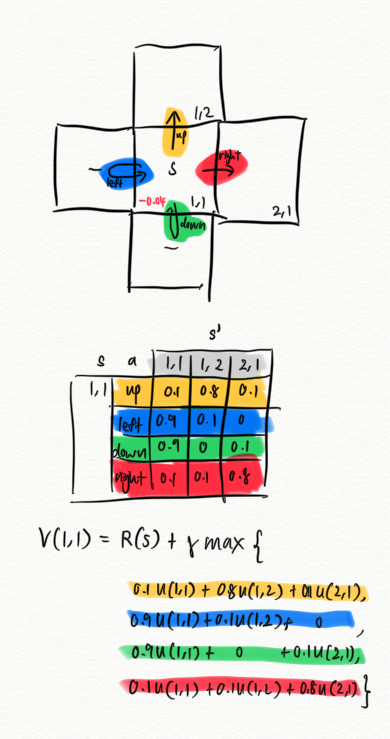 1,2
up
left
S
right
-0.04
1,1
2,1
down
s'
s a 1,1 1,2 2,1
1,1 up 0.1 0.8 0.1
left 0.9 0.1 0
down 0.9 0 0.1
right 0.1 0.1 0.8
V(1,1) = R(s) + γ max {
0.1 U(1,1) + 0.8 U(1,2) + 0.1 U(2,1),
0.9 U(1,1) + 0.1 U(1,2) + 0 ,
0.9 U(1,1) + 0 + 0.1 U(2,1),
0.1 U(1,1) + 0.1 U(1,2) + 0.8 U(2,1) }